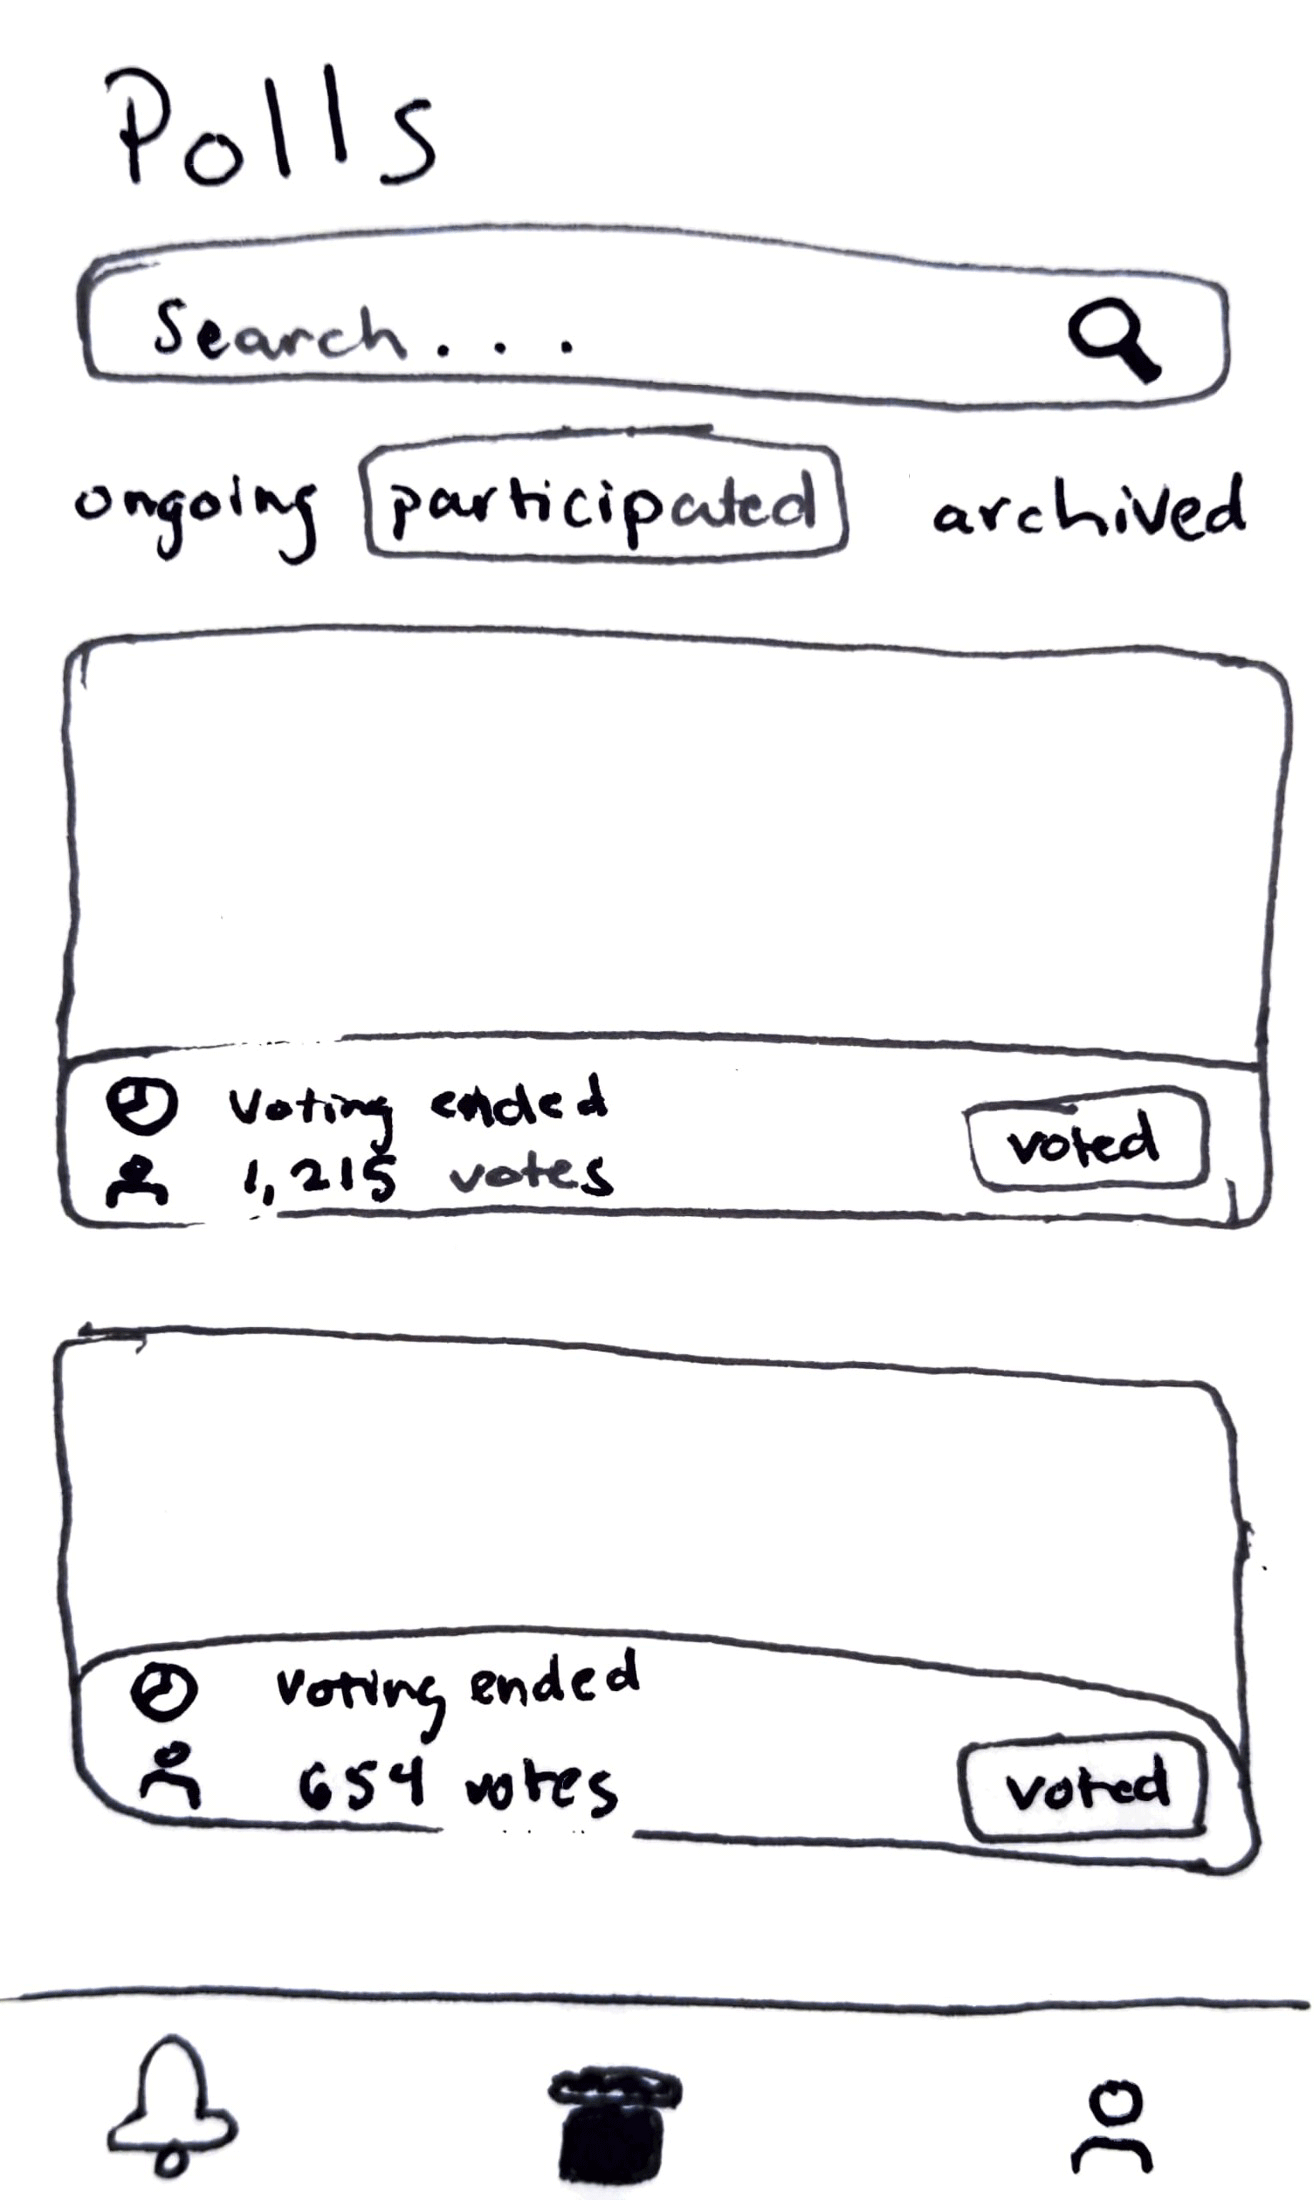 Polls
Search...
ongoing participated archived
Voting ended
1,215 votes
voted
Voting ended
654 votes
voted